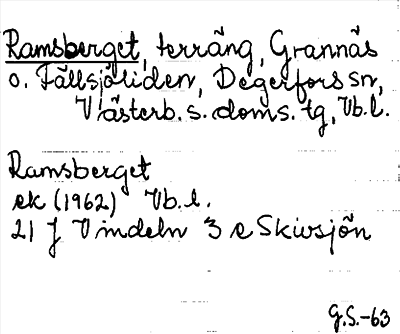 Ramsberget, terräng, Grannäs
o. Fällsjöliden, Degerfors sn,
Västerb. s. doms. tg, Vb. l.
Ramsberget
ek (1962) Vb. l.
21 J Vindeln 3 e Skivsjön
G.S.-63